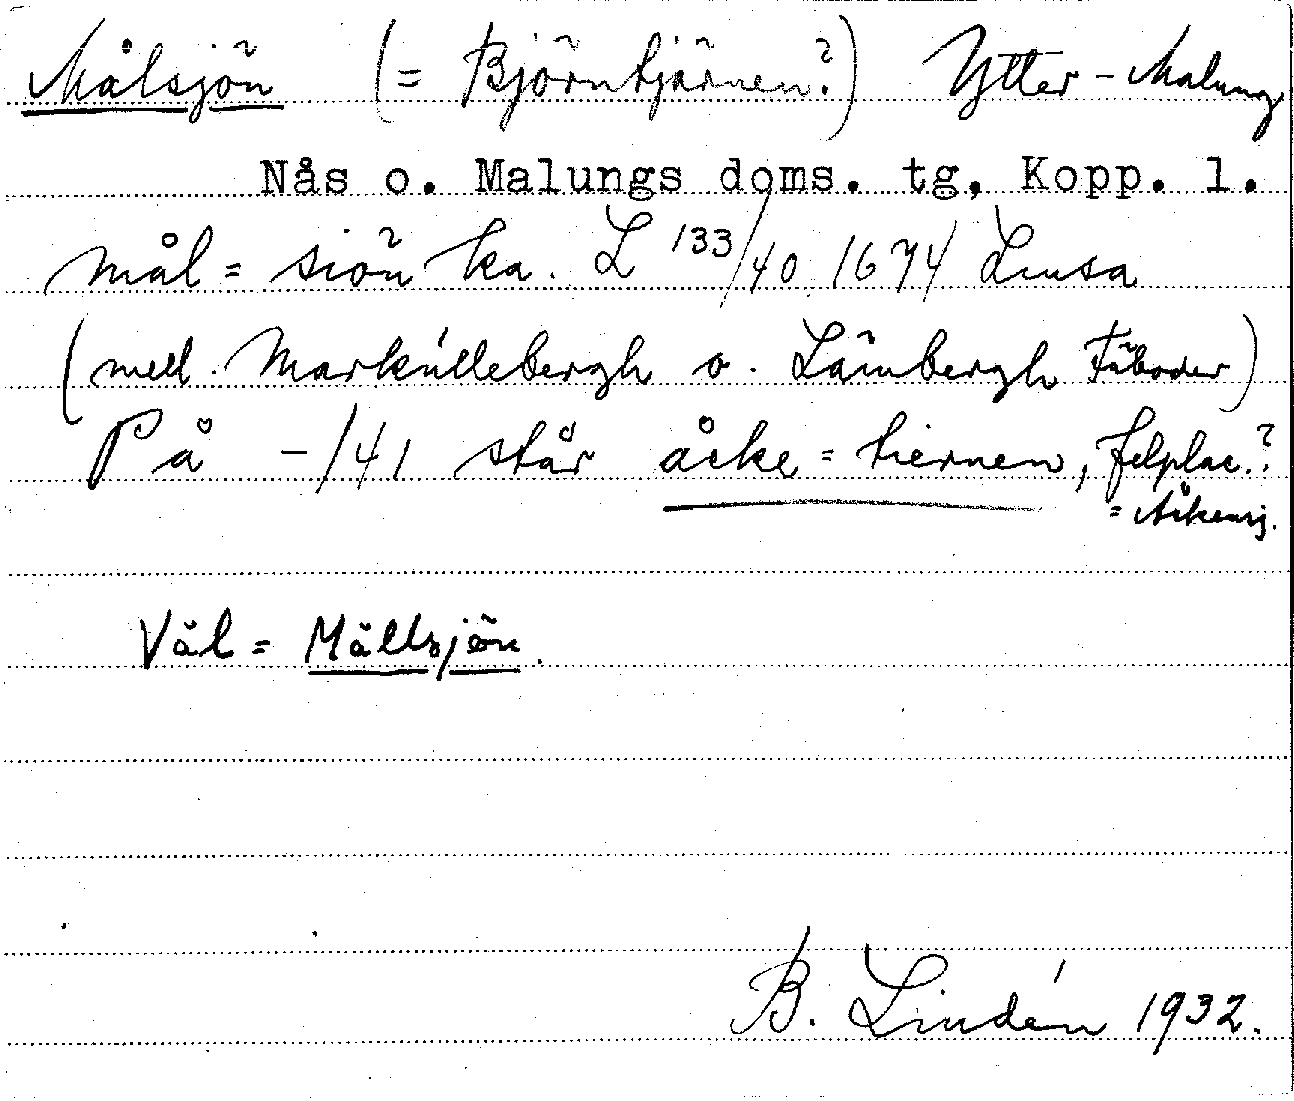 Målsjön (= Björntjärnen?) Ytter-Malung
Nås o. Malungs doms. tg, Kopp. l.
mål = siön ka. L 133/40 1674 Limsa
(mell. Markúllebergh o. Lämbergh Fäboder)
På -/41 står åcke = tiernen, felplac.?
= Åkensj.
Väl = Mällsjön.
B. Lindén 1932.